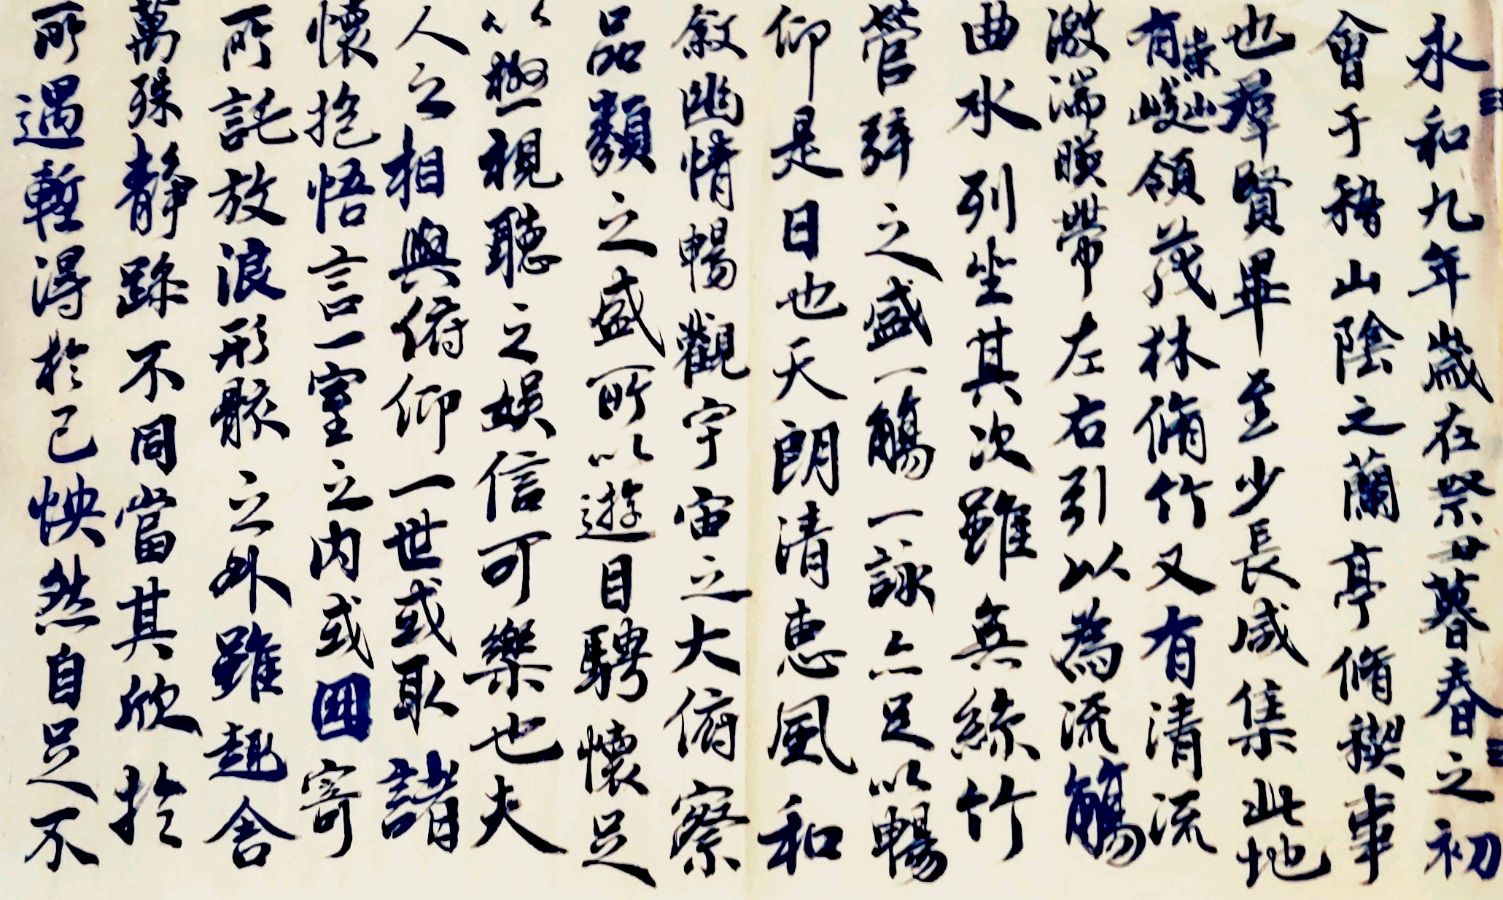 永和九年歲在癸丑暮春之初
會于稽山陰之蘭亭脩稧事
也羣賢畢至少長咸集此地
有崇山峻領茂林脩竹又有清流
激湍暎帶左右引以為流觴
曲水列坐其次雖無絲竹
管弦之盛一觴一詠亦足以暢
仰是日也天朗清惠風和
敘幽情暢觀宇宙之大俯察
品類之盛所以遊目騁懷足
以極視聽之娛信可樂也夫
人之相與俯仰一世或取諸
懷抱悟言一室之內或因寄
所託放浪形骸之外雖趣舍
萬殊静躁不同當其欣於
所遇暫得於己怏然自足不